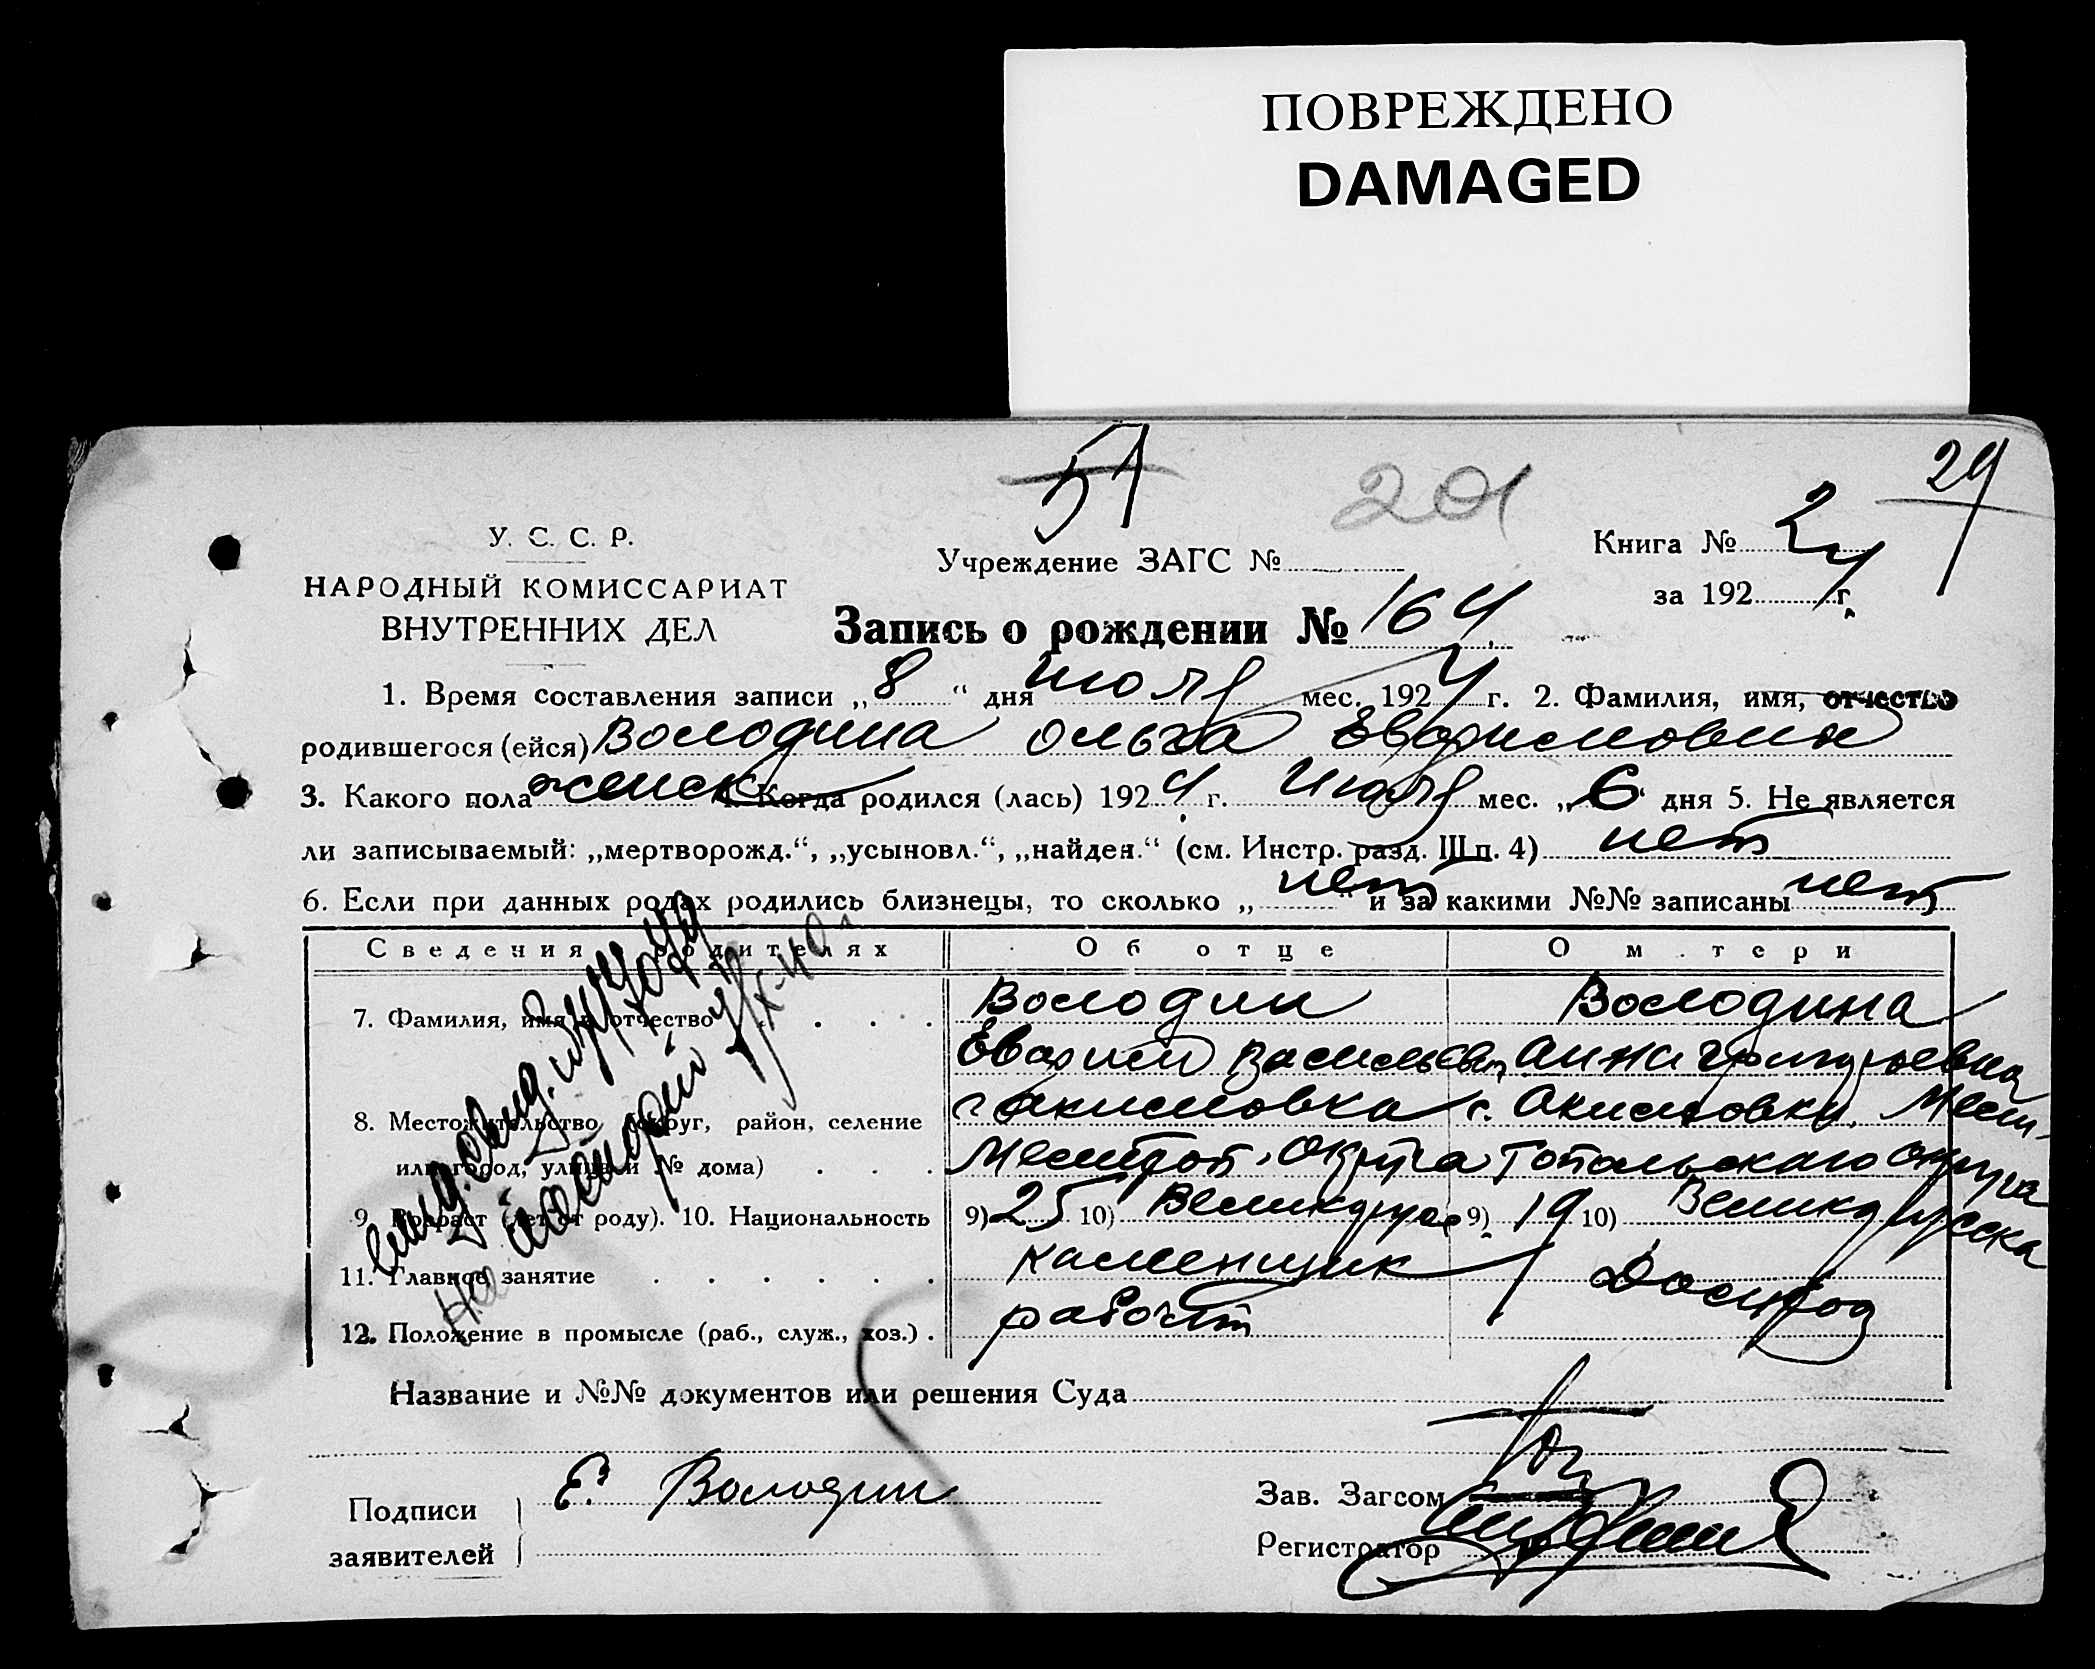 ПОВРЕЖДЕНО
DAMAGED
51
201
29
У. С. С. Р.
НАРОДНЫЙ КОМИССАРИАТ
ВНУТРЕННИХ ДЕЛ
Учреждение ЗАГС №
Книга № 2
за 1924 г.
Запись о рождении № 164
1. Время составления записи „8“ дня июля мес. 1924 г. 2. Фамилия, имя, отчество
родившегося (ейся) Володина Ольга
3. Какого пола женск 4. Когда родился (лась) 1924 г. Июля мес. „6“ дня 5. Не является
ли записываемый: „мертворожд.“, „усыновл.“, „найден.“ (см. Инстр. разд. III п. 4) нет
6. Если при данных родах родились близнецы, то сколько „нет“ и за какими №№ записаны нет
Сведения о родителях Об отце О матери
7. Фамилия, имя и отчество . . . . Володин Володина
Васильев. Анна Григорьевна
8. Местожительство (округ, район, селение с. Акимовка с. Акимовки, Мели-
или город, улица и № дома) . . . Мелитоп. Округа округа
9. Возраст (лет от роду). 10. Национальность 9) 25 10) Великорос 9) 19 10) Великорусска
11. Главное занятие . . . . . . каменщик
12. Положение в промысле (раб., служ., хоз.) . работ
Название и №№ документов или решения Суда
Подписи
заявителей
Е. Володин
Зав. Загсом
Регистратор